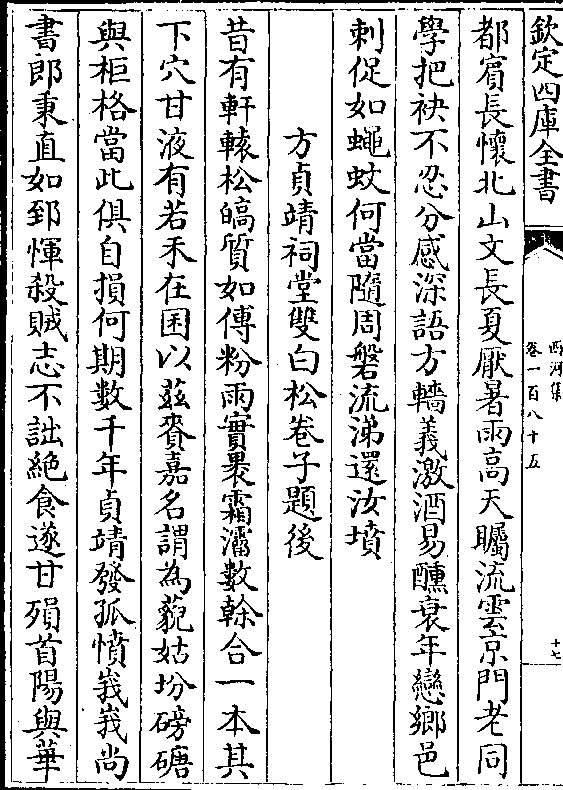 欽定四庫全書
西河集
卷一百八十五
十七
都賓長懷北山文長夏厭暑雨高天矚流雲京門老同
學把袂不忍分感深語方轖義激酒易醺衰年戀鄉邑
刺促如蠅蚊何當隨周磐流涕還汝墳
方貞靖祠堂雙白松卷子題後
昔有軒轅松皜質如傅粉雨實褁霜瀋數榦合一本其
下穴甘液有若禾在囷以兹賚嘉名謂為藐姑坋磅磄
與柜格當此俱自損何期數千年貞靖發孤憤峩峩尚
書郎秉直如郅惲殺賊志不詘絶食遂甘殞首陽與華